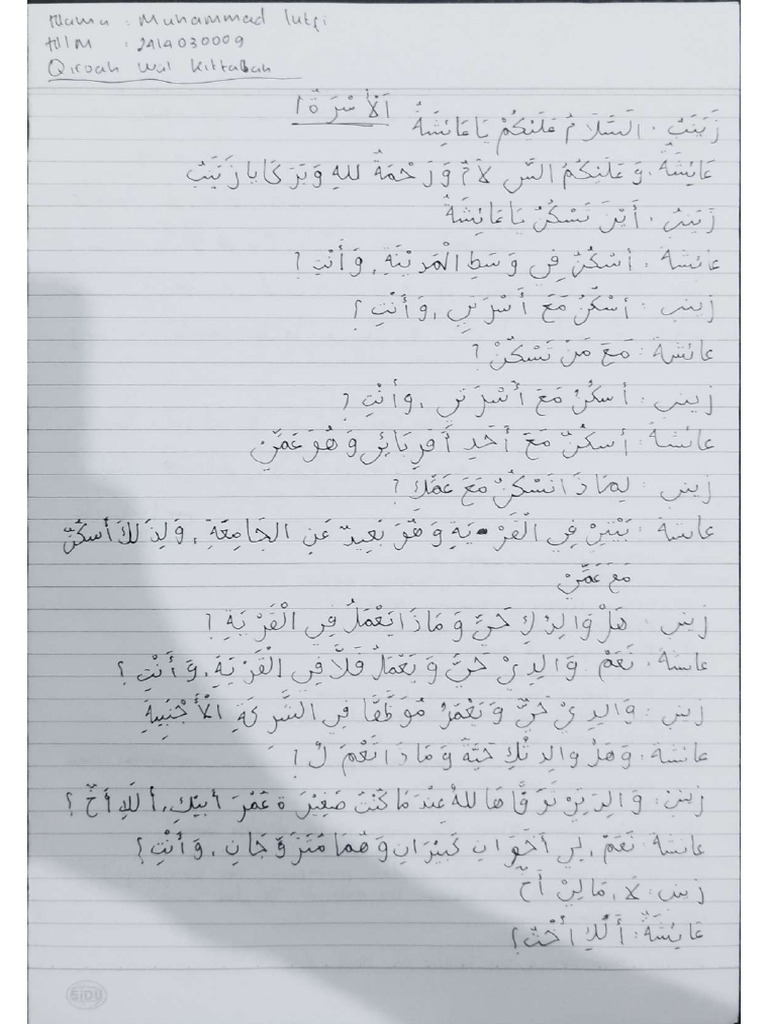 Nama : Muhammad lutfi
NIM : 2414030009
Qiroah wal kittabah
اَلْأُسْرَةُ ١
زَيْنَبُ : اَلسَّلَامُ عَلَيْكُمْ يَا عَائِشَةُ
عَائِشَةُ : وَعَلَيْكُمُ السَّلَامُ وَرَحْمَةُ للهِ وَبَرَكَا يا زَيْنَبُ
زَيْنَبُ : أَيْنَ تَسْكُنُ يَا عَائِشَةُ
عائشة : أسْكُنُ فِي وَسَطِ الْمَدِيْنَةِ , وَأَنْتِ ؟
زينب : أسْكُنُ مَعَ أُسْرَتِي , وَأَنْتِ ؟
عائشة : مَعَ مَنْ تَسْكُنْ ؟
زينب : أسكُنُ مَعَ أُسْرَتِي , وأنْتِ ؟
عائشة : أسكُنُ مَعَ أَحَدِ أَقرِبَائِي وَهُوَ عَمِّيْ
زينب : لِمَاذَا تَسْكُنُ مَعَ عَمِّكِ ؟
عائشة : بَيْتِيْ فِي الْقَرْيَةِ وَهُوَ بَعِيدٌ عَنِ الجَامِعَةِ , وَلِذَلكَ أسكُنُ
مَعَ عَمِّيْ
زينب : هَلْ وَالِدُكِ حَيٌّ وَمَاذَا يَعْمَلُ فِي الْقَرْيَةِ ؟
عائشة : نَعَمْ وَالِدِيْ حَيٌّ وَيَعْمَلُ فَلَّاحًا فِي الْقَرْيَةِ , وَأَنْتِ ؟
زينب : وَالِدِيْ حَيٌّ وَيَعْمَلُ مُوَظَّفًا فِي الشَّرِكَةِ الْأَجْنَبِيةِ
عائشة : وَهَلْ والِدتُكِ حَيَّةٌ وَمَاذَا تَعْمَلُ ؟
زينب : وَالِدَتِيْ تَوَفَّاهَا للهُ عِنْدَمَا كُنْتُ صَغِيْرَة عُمْرَ أبِيْكِ , أَلَكِ أَخٌ ؟
عائشة : نَعَمْ , لِي أخَوَانِ كَبِيْرَانِ وَهُمَا مُتَزَوِّجَانِ , وَأَنْتِ ؟
زينب : لَا , مَالِيْ أَخٌ
عَائِشَةُ : أَلَكِ أُخْتٌ ؟
SIDU